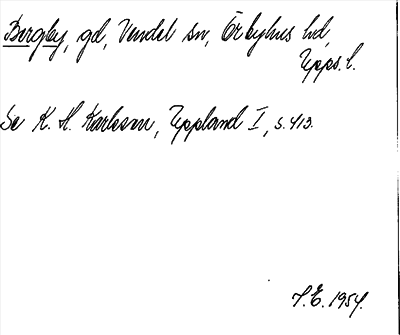 Bergby, gd, Vendel sn, Örbyhus hd,
Upps. l.
Se K. H. Karlsson, Uppland I, s. 413.
J.E. 1954.